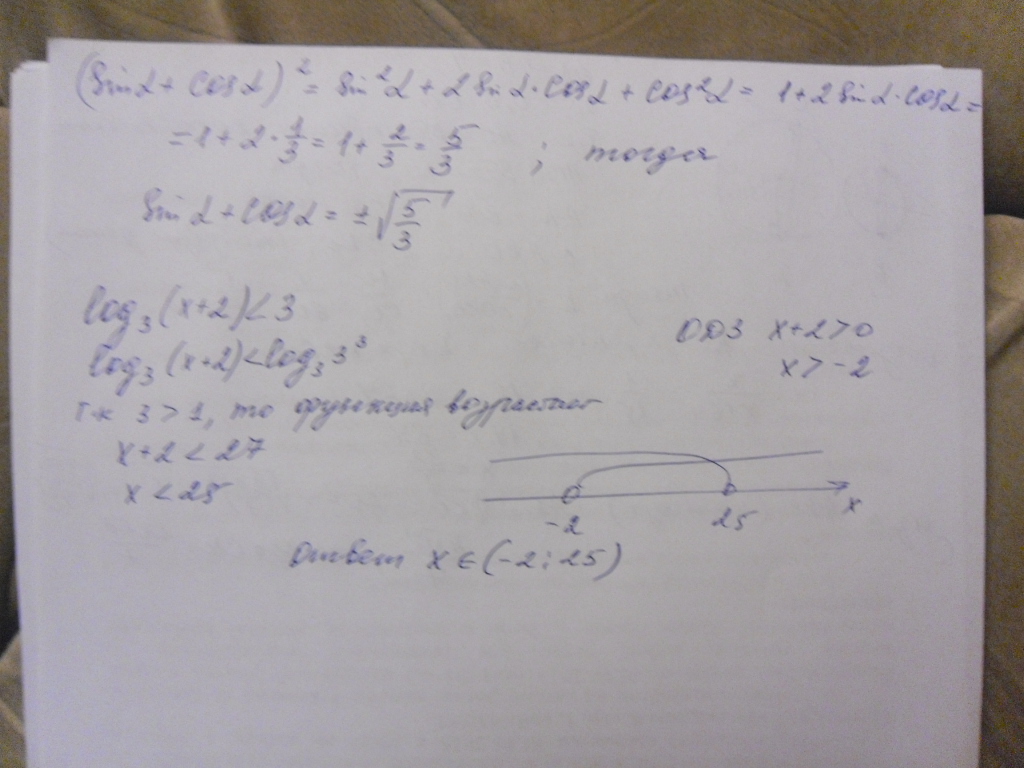 (sin α + cos α)² = sin²α + 2 sin α · cos α + cos²α = 1 + 2 sin α · cos α =
= 1 + 2 · 1/3 = 1 + 2/3 = 5/3 ; тогда
sin α + cos α = ± √(5/3)
log₃(x+2) < 3
ОДЗ x+2>0
log₃(x+2) < log₃ 3³
x > -2
т.к 3 > 1, то функция возрастает
x+2 < 27
x < 25
x
-2 25
ответ x ∈ (-2; 25)